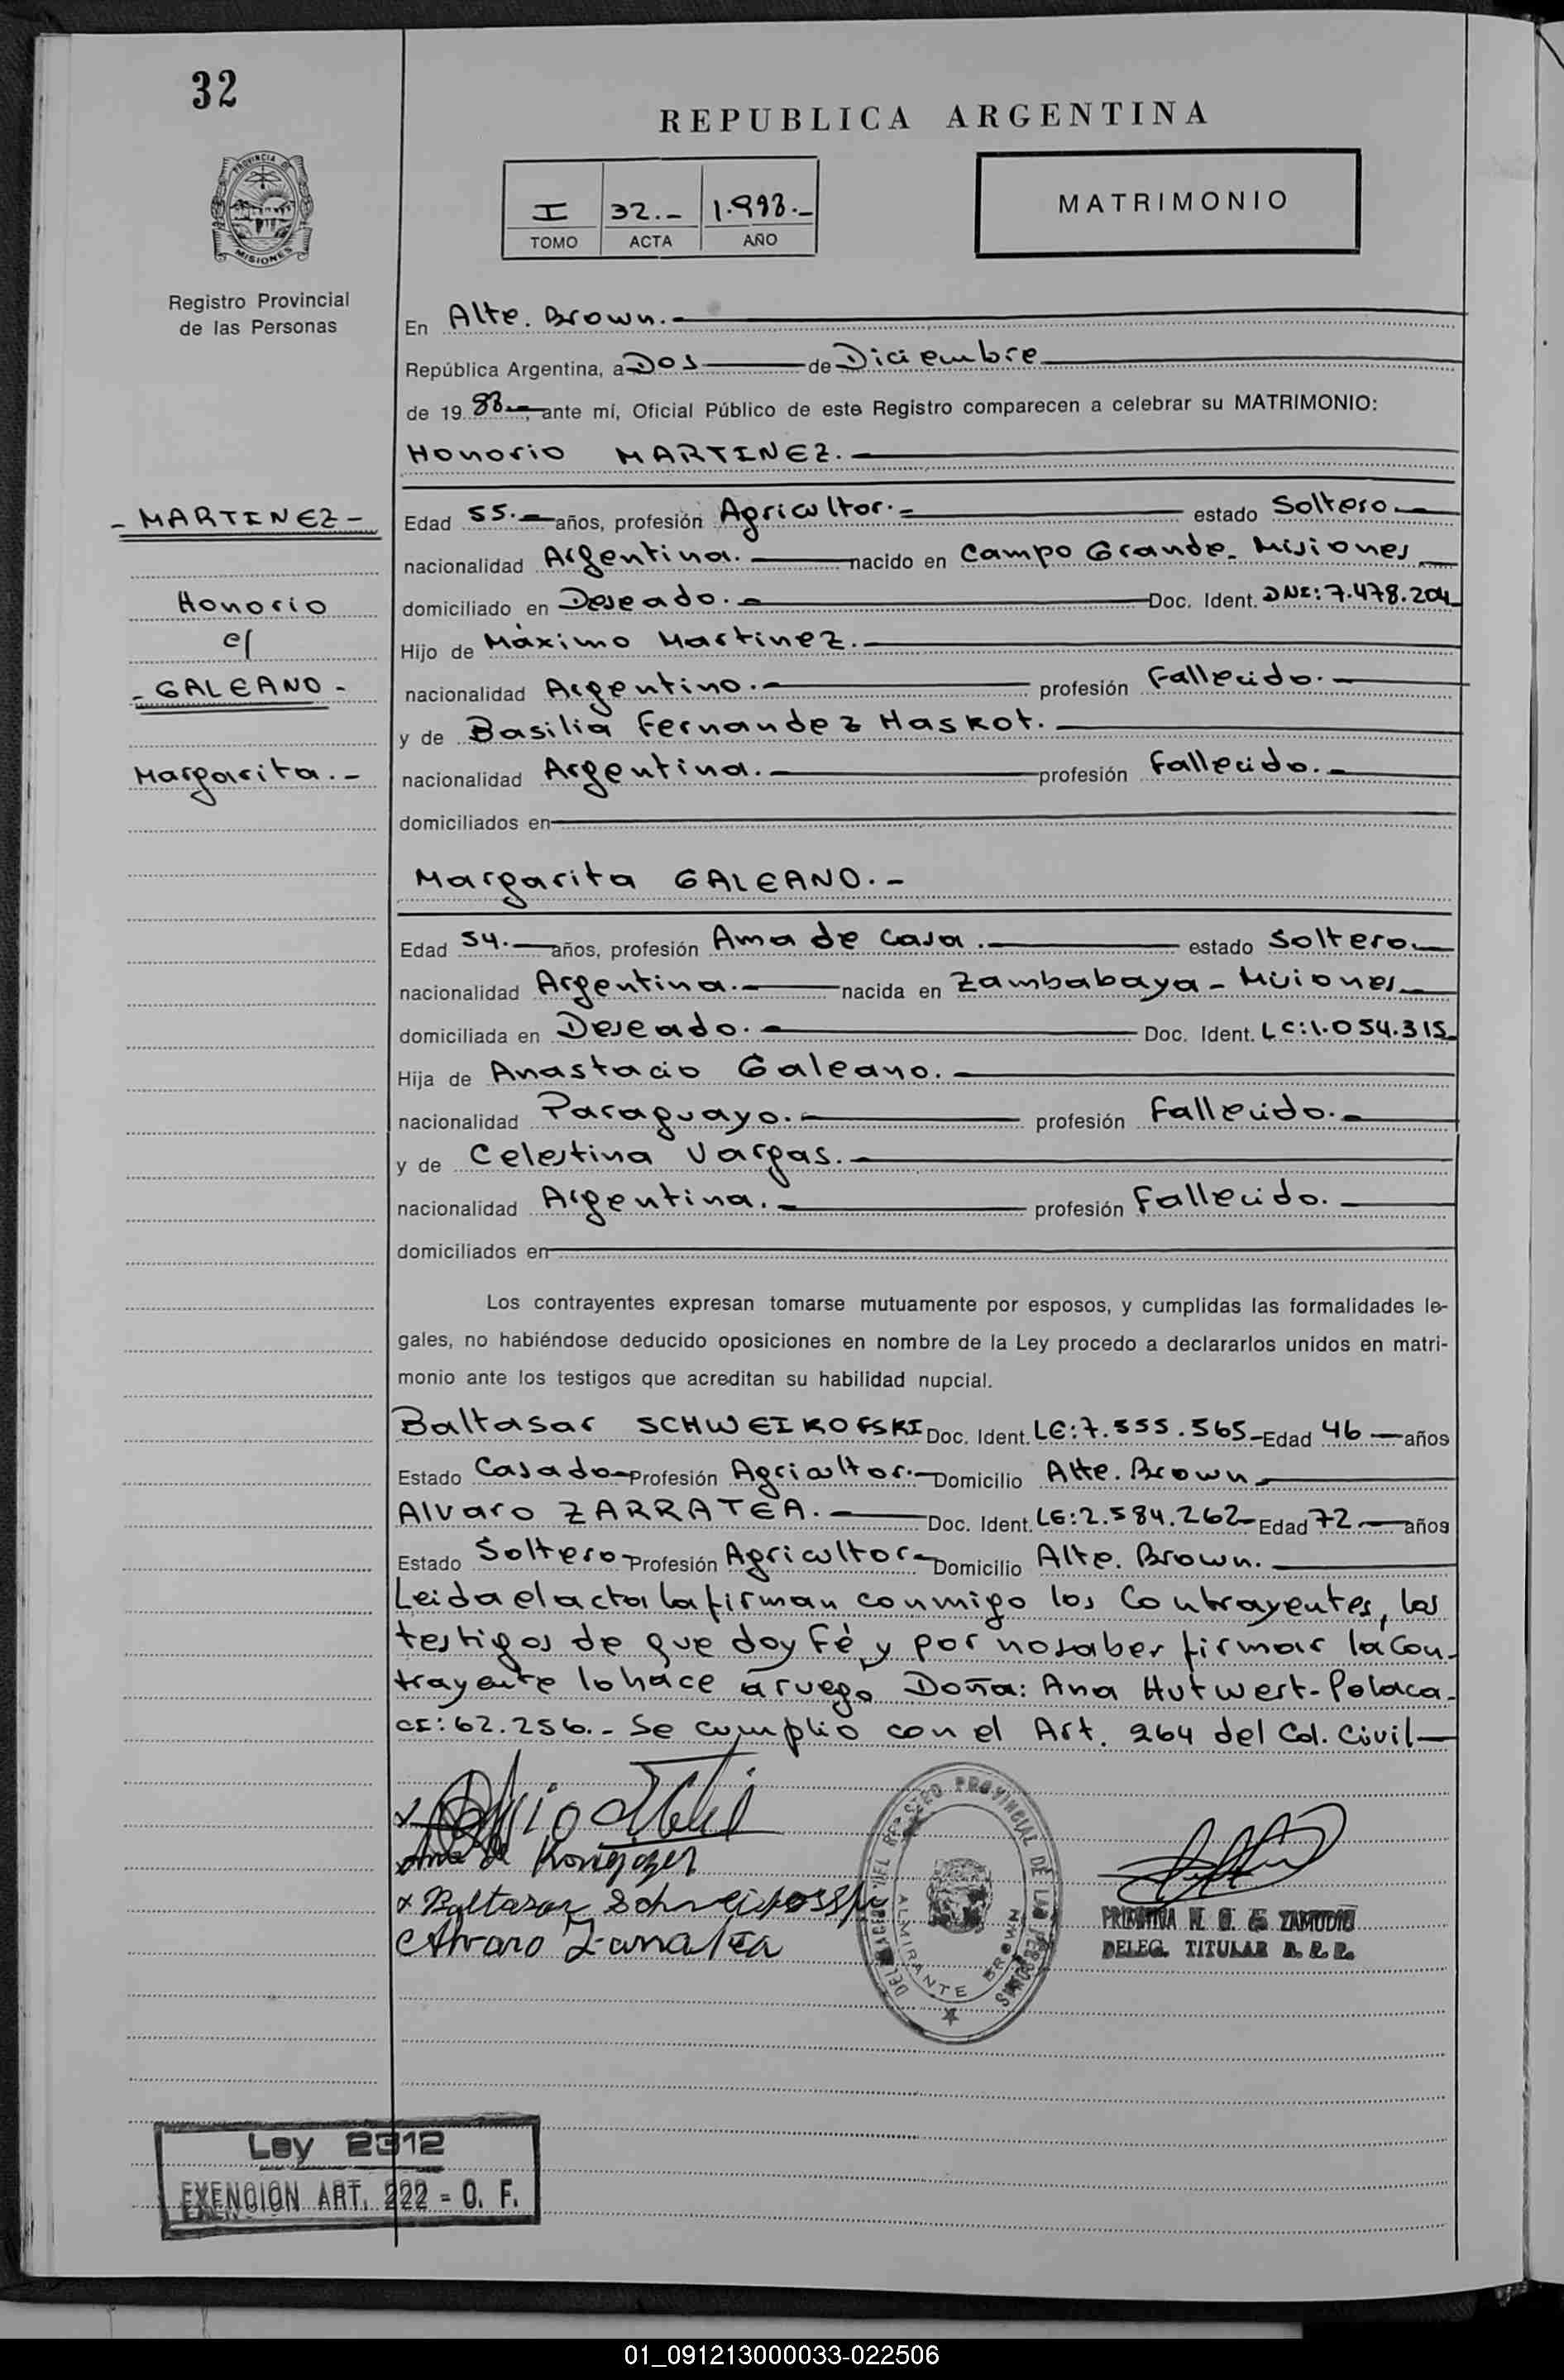 32
REPUBLICA ARGENTINA
PROVINCIA DE MISIONES
I 32.- 1.983.-
TOMO ACTA AÑO
MATRIMONIO
Registro Provincial
de las Personas
En Alte. Brown.-
República Argentina, a Dos de Diciembre
de 19 83.- ante mí, Oficial Público de este Registro comparecen a celebrar su MATRIMONIO:
Honorio MARTINEZ.-
- MARTINEZ -
Honorio
c/
- GALEANO -
Margarita.-
Edad 55.- años, profesión Agricultor.- estado Soltero.-
nacionalidad Argentina.- nacido en Campo Grande - Misiones
domiciliado en Deseado.- Doc. Ident. DNI: 7.478.204
Hijo de Máximo Martinez.-
nacionalidad Argentino.- profesión Fallecido.-
y de Basilia Fernandez Haskot.
nacionalidad Argentina.- profesión Fallecido.-
domiciliados en
Margarita GALEANO.-
Edad 54.- años, profesión Ama de casa.- estado Soltero.-
nacionalidad Argentina.- nacida en Zambabaya - Misiones
domiciliada en Deseado.- Doc. Ident. LC: 1.054.315
Hija de Anastacio Galeano.-
nacionalidad Paraguayo.- profesión Fallecido.-
y de Celestina Vargas.-
nacionalidad Argentina.- profesión Fallecido.
domiciliados en
Los contrayentes expresan tomarse mutuamente por esposos, y cumplidas las formalidades le-
gales, no habiéndose deducido oposiciones en nombre de la Ley procedo a declararlos unidos en matri-
monio ante los testigos que acreditan su habilidad nupcial.
Baltasar SCHWEIKOFSKI Doc. Ident. LE: 7.555.565- Edad 46 años
Estado Casado- Profesión Agricultor.- Domicilio Alte. Brown
Alvaro ZARRATEA.- Doc. Ident. LE: 2.584.262- Edad 72.- años
Estado Soltero- Profesión Agricultor- Domicilio Alte. Brown.
Leida el acta la firman conmigo los Contrayentes, los
testigos de que doy Fé, y por no saber firmar la Con-
trayente lo hace a ruego Doña: Ana Hutwert - Polaca -
CI: 62.256.- Se cumplio con el Art. 264 del Cd. Civil
Baltasar
Alvaro Zarratea
DEL REGISTRO PROVINCIAL DE LAS PERSONAS
ALMIRANTE BROWN
ZAMUDIO
DELEG. TITULAR R. P. P.
Ley 2312
EXENCION ART. 222 = O. F.
01_091213000033-022506